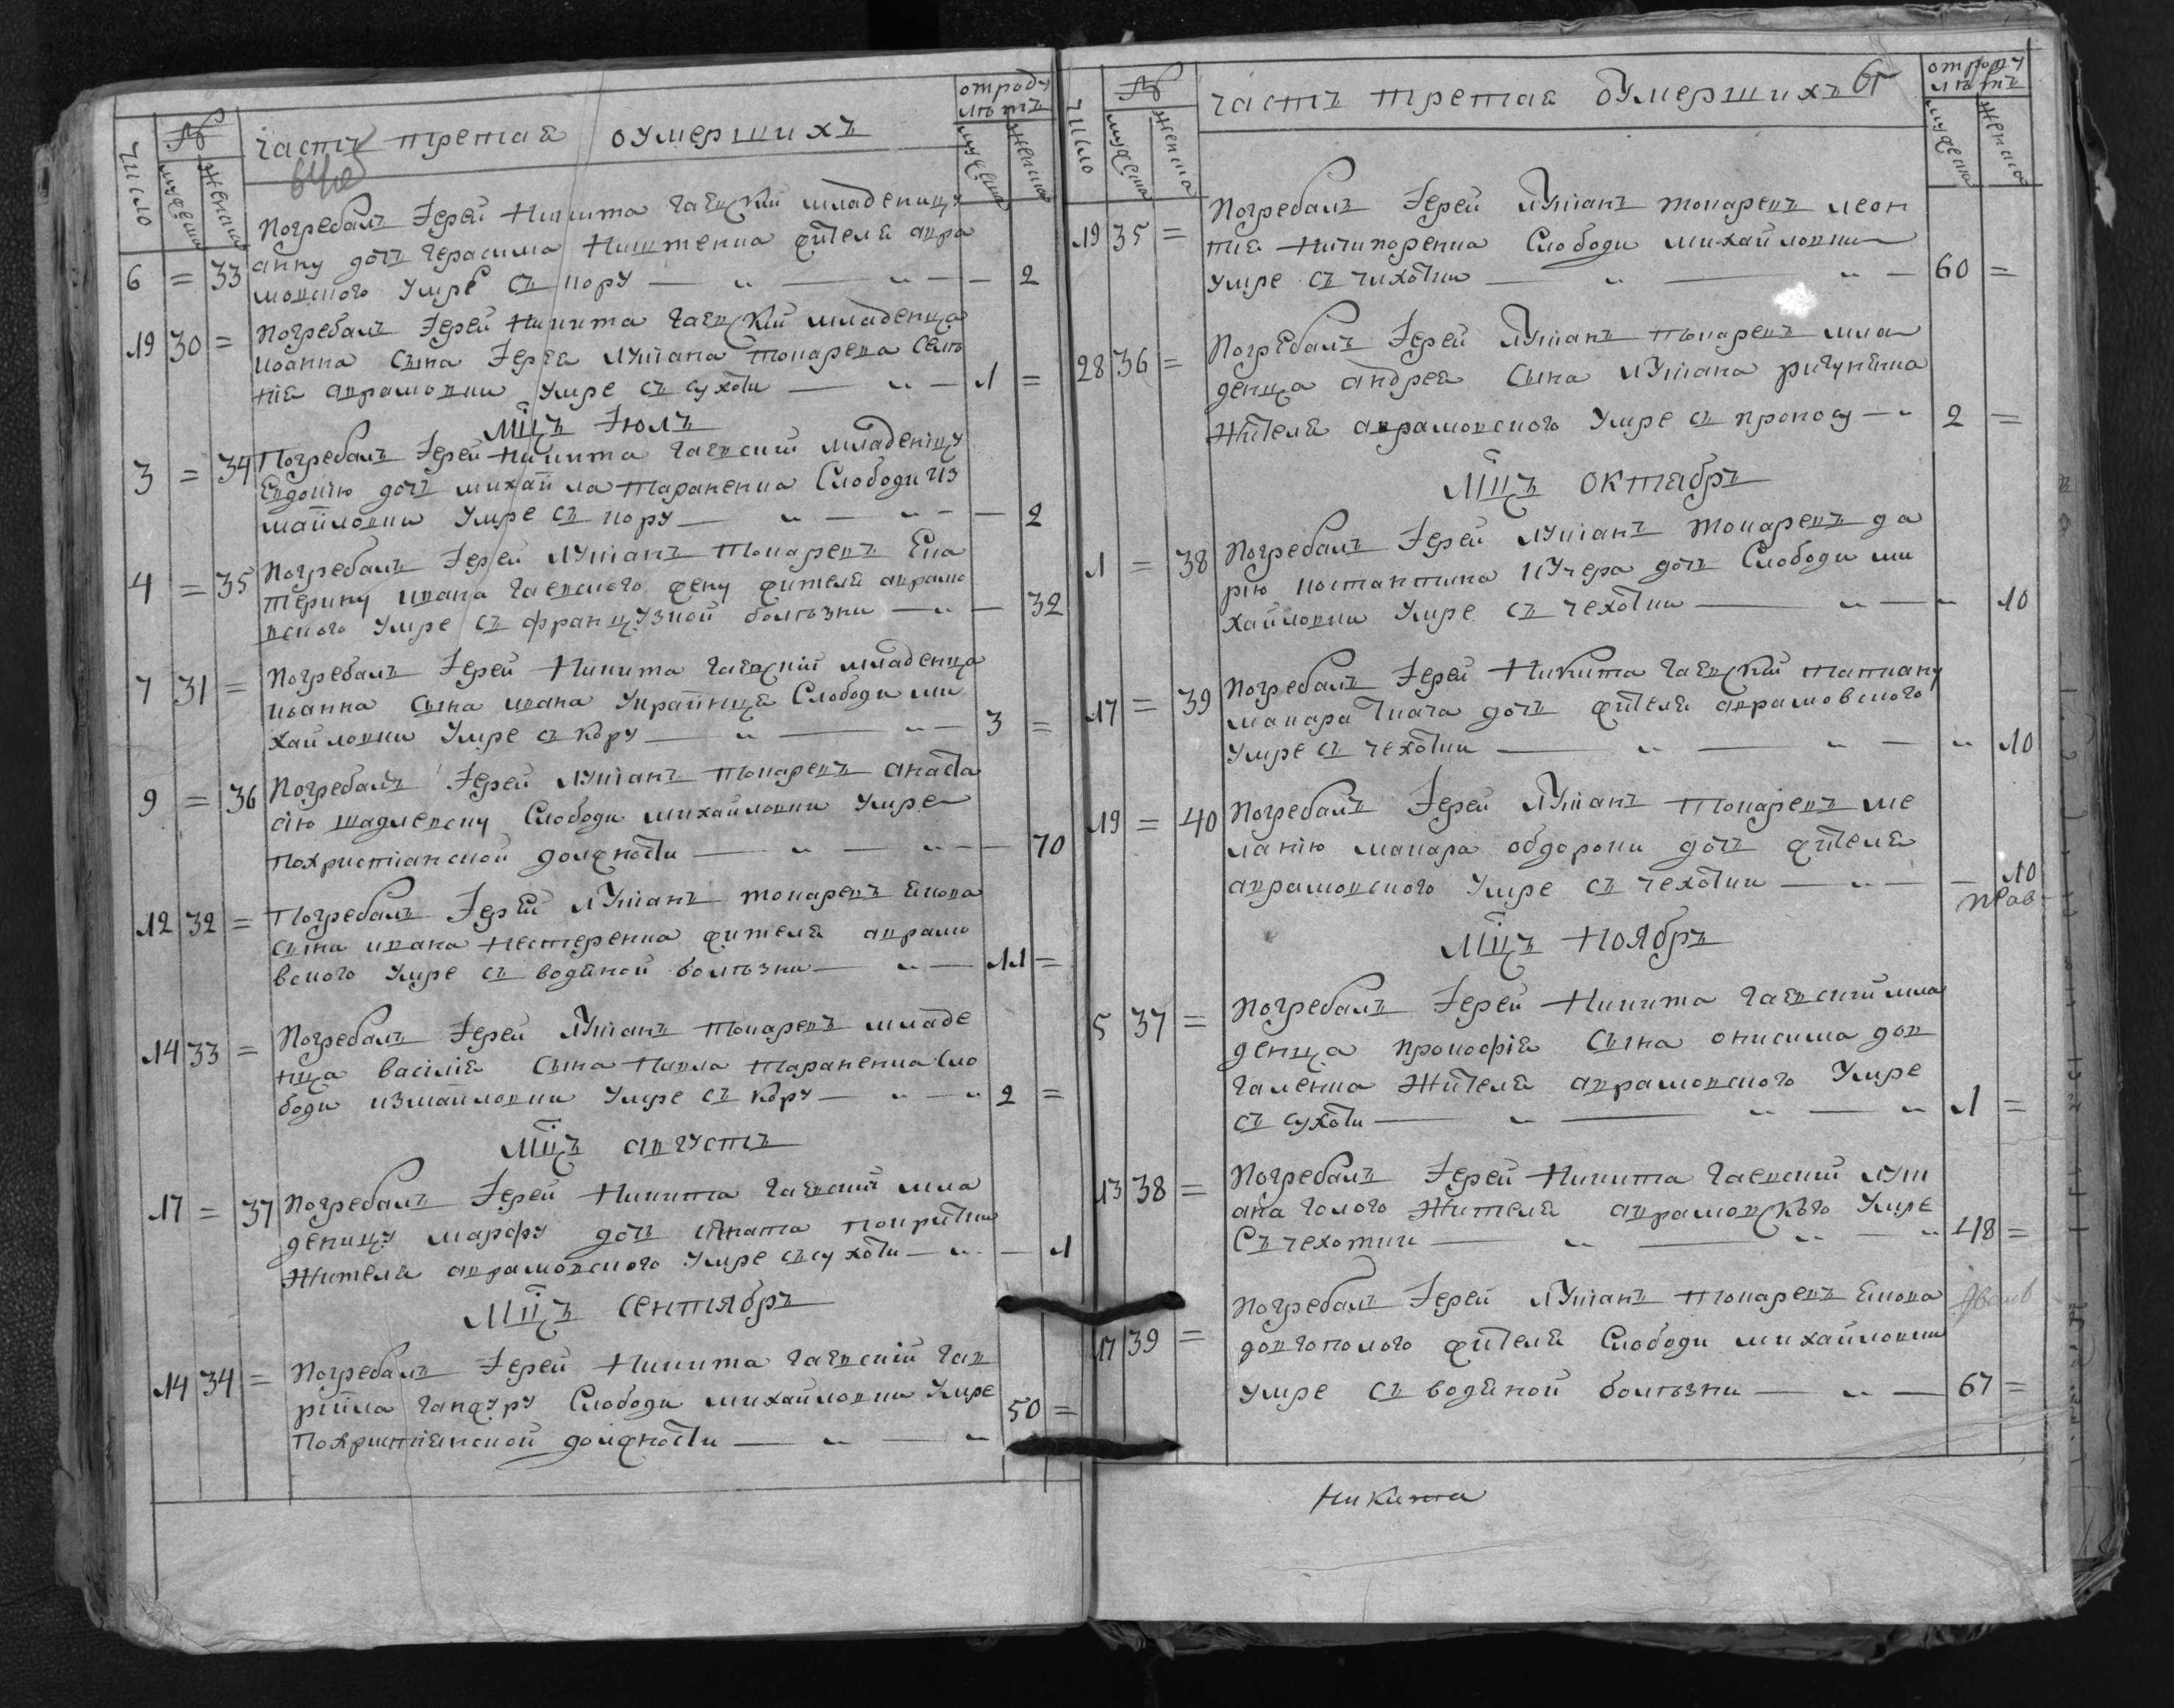 Число
№
мужеска
женска
Часть третая оумершихъ
отроду
лѣтъ
мужеска
женска
64об
Погребалъ Іерей Никита Гаевскій младеницу
6 = 33 анну дочь Герасима Никитенка жителя авра
мовского Умре съ кору — „ — „ — — 2
19 30 = Погребалъ Іерей Никита Гаевскій младенца
иоанна сына Іерея Лукіана Токарева селѣ
ніе аврамовки Умре съ сухоти — „ — 1 =
Мцъ Іюль
3 = 34 Погребалъ Іерей Никита Гаевский младеницу
Евдокію дочь михайла Тараненка Слободи Из
майловки Умре съ кору — „ — „ — — 2
4 = 35 Погребалъ Іерей Лукіанъ Токаревъ Ека
терину ивана Гаевского жену жителя аврамо
вского Умре съ французкой болѣзни — „ — — 32
7 31 = Погребалъ Іерей Никита Гаевскій младенца
иоанна сына ивана Украинця Слободи ми
хайловки Умре съ кору — „ — „ — 3 =
9 = 36 Погребалъ Іерей Лукіанъ Токаревъ анаста
сію шадлевску Слободи михайловки Умре
По христіанской должности — „ — „ — — 70
12 32 = Погребалъ Іерей Лукіанъ Токаревъ Якова
сына ивана Нестеренка жителя аврамо
вского Умре съ водяной болѣзни — „ — 11 =
14 33 = Погребалъ Іерей Лукіанъ Токаревъ младе
нца василія сына Павла Тараненка Сло
боди измайловки Умре съ кору — „ — „ 2 =
Мцъ августъ
17 = 37 Погребалъ Іерей Никита Гаевский мла
деницу марфу дочь игната покритки
жителя аврамовского Умре съ сухоти — „ — 1
Мцъ сентябрь
14 34 = Погребалъ Іерей Никита Гаевскій Гав
рїила Ганжуру Слободи михайловки Умре
По христіянской должности — „ — „ 50 =
Число
№
мужеска
женска
Часть третая оумершихъ 65
отроду
лѣтъ
мужеска
женска
19 35 = Погребалъ Іерей Лукіанъ Токаревъ леон
тія Ничипоренка Слободи михайловки
Умре съ чихотки — „ — „ — 60 =
28 36 = Погребалъ Іерей Лукіанъ Токаревъ мла
денца андрея сына Лукіана
Жителя аврамовского Умре съ проносу — „ 2 =
Мцъ октябрь
1 = 38 Погребалъ Іерей Лукіанъ Токаревъ да
рію костантина Кучера дочь Слободи ми
хайловки Умре съ чехотки — „ — „ 10
17 = 39 Погребалъ Іерей Никита Гаевскій татиану
макара Ткача дочь жителя аврамовского
Умре съ чехотки — „ — „ — „ 10
19 = 40 Погребалъ Іерей Лукіанъ Токаревъ ме
ланію макара обдорони дочь жителя
аврамовского Умре съ чехотки — „ — — 10
Мцъ Ноябрь
5 37 = Погребалъ Іерей Никита Гаевский мла
денца прокофія сына онисима дов
галенка Жителя аврамовского Умре
съ сухоти — „ — „ — „ 1 =
13 38 = Погребалъ Іерей Никита Гаевский лукі
ана Голого Жителя аврамовского Умре
Съ чехотки — „ — „ — „ 48 =
17 39 = Погребалъ Іерей Лукіанъ Токаревъ Якова
довгополого жителя Слободи михайловки
Умре съ водяной болѣзни — „ — 67 =
Никита